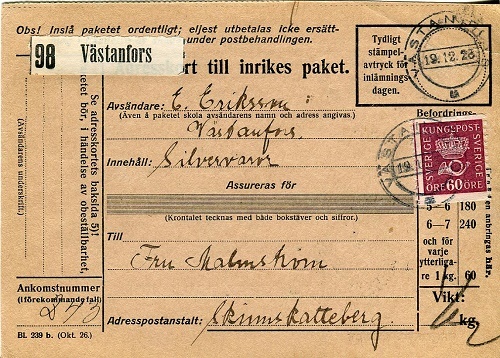 Obs! Inslå paketet ordentligt; eljest utbetalas icke ersätt-
under postbehandlingen.
98 Västanfors
kort till inrikes paket.
Tydligt
stämpel-
avtryck för
inlämnings-
dagen.
VÄSTANFORS
19.12.28
Avsändare: E. Eriksson
(Även å paketet skola avsändarens namn och adress angivas.)
Västanfors
Innehåll: Silvervaror
Assureras för
(Krontalet tecknas med både bokstäver och siffror.)
Till
Fru Malmström
Adresspostanstalt: Skinnskatteberg
(Avsändarens underskrift.)
Se adresskortets baksida 5)!
et bör, i händelse av obeställbarhet,
Ankomstnummer
(i förekommande fall)
BL 239 b. (Okt. 26.)
Befordrings-
VÄSTAN
19.1
KUNGSPOST
SVERIGE
SVERIGE
ÖRE 60 ÖRE
5—6 180
6—7 240
och för
varje
ytterliga-
re 1 kg. 60
en anbringas här.
Vikt:
kg.